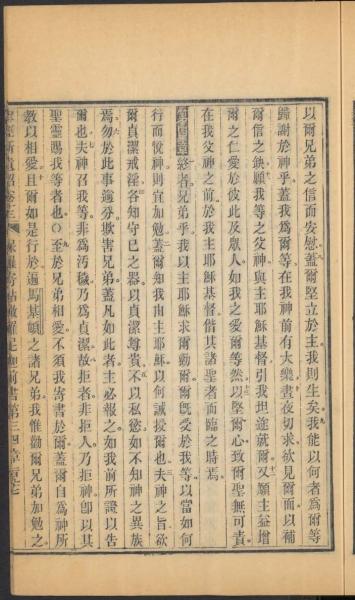 以爾兄弟之信而安慰蓋爾堅立於主我則生矣我能以何者爲爾等
歸謝於神乎蓋我爲爾等在我神前有大樂晝夜切求欲見爾面以補
爾信之缺願我等之父神與主耶穌基督引我坦途就爾又願主益增
爾之仁愛於彼此及眾人如我之愛爾等然以堅爾心致爾聖無可責
在我父神之前於我主耶穌基督偕其諸聖者而臨之時焉
第四章終者兄弟乎我以主耶穌求爾勸爾爾既受於我等以當如何
行而悅神則宜加勉蓋爾知我由主耶穌以何誡授爾也夫神之旨欲
爾貞潔戒淫各知守己之器以貞潔尊貴不以私慾如不知神之異族
焉勿於此事逾分欺害兄弟蓋凡如此者主必報之如我前所證以告
爾也夫神召我等非爲汚穢乃爲貞潔故拒者非拒人乃拒神卽以其
聖靈賜我等者也〇至於兄弟相愛不須我寄書於爾蓋爾自爲神所
教以相愛且爾如是行於遍馬基頓之諸兄弟我惟勸爾兄弟加勉之